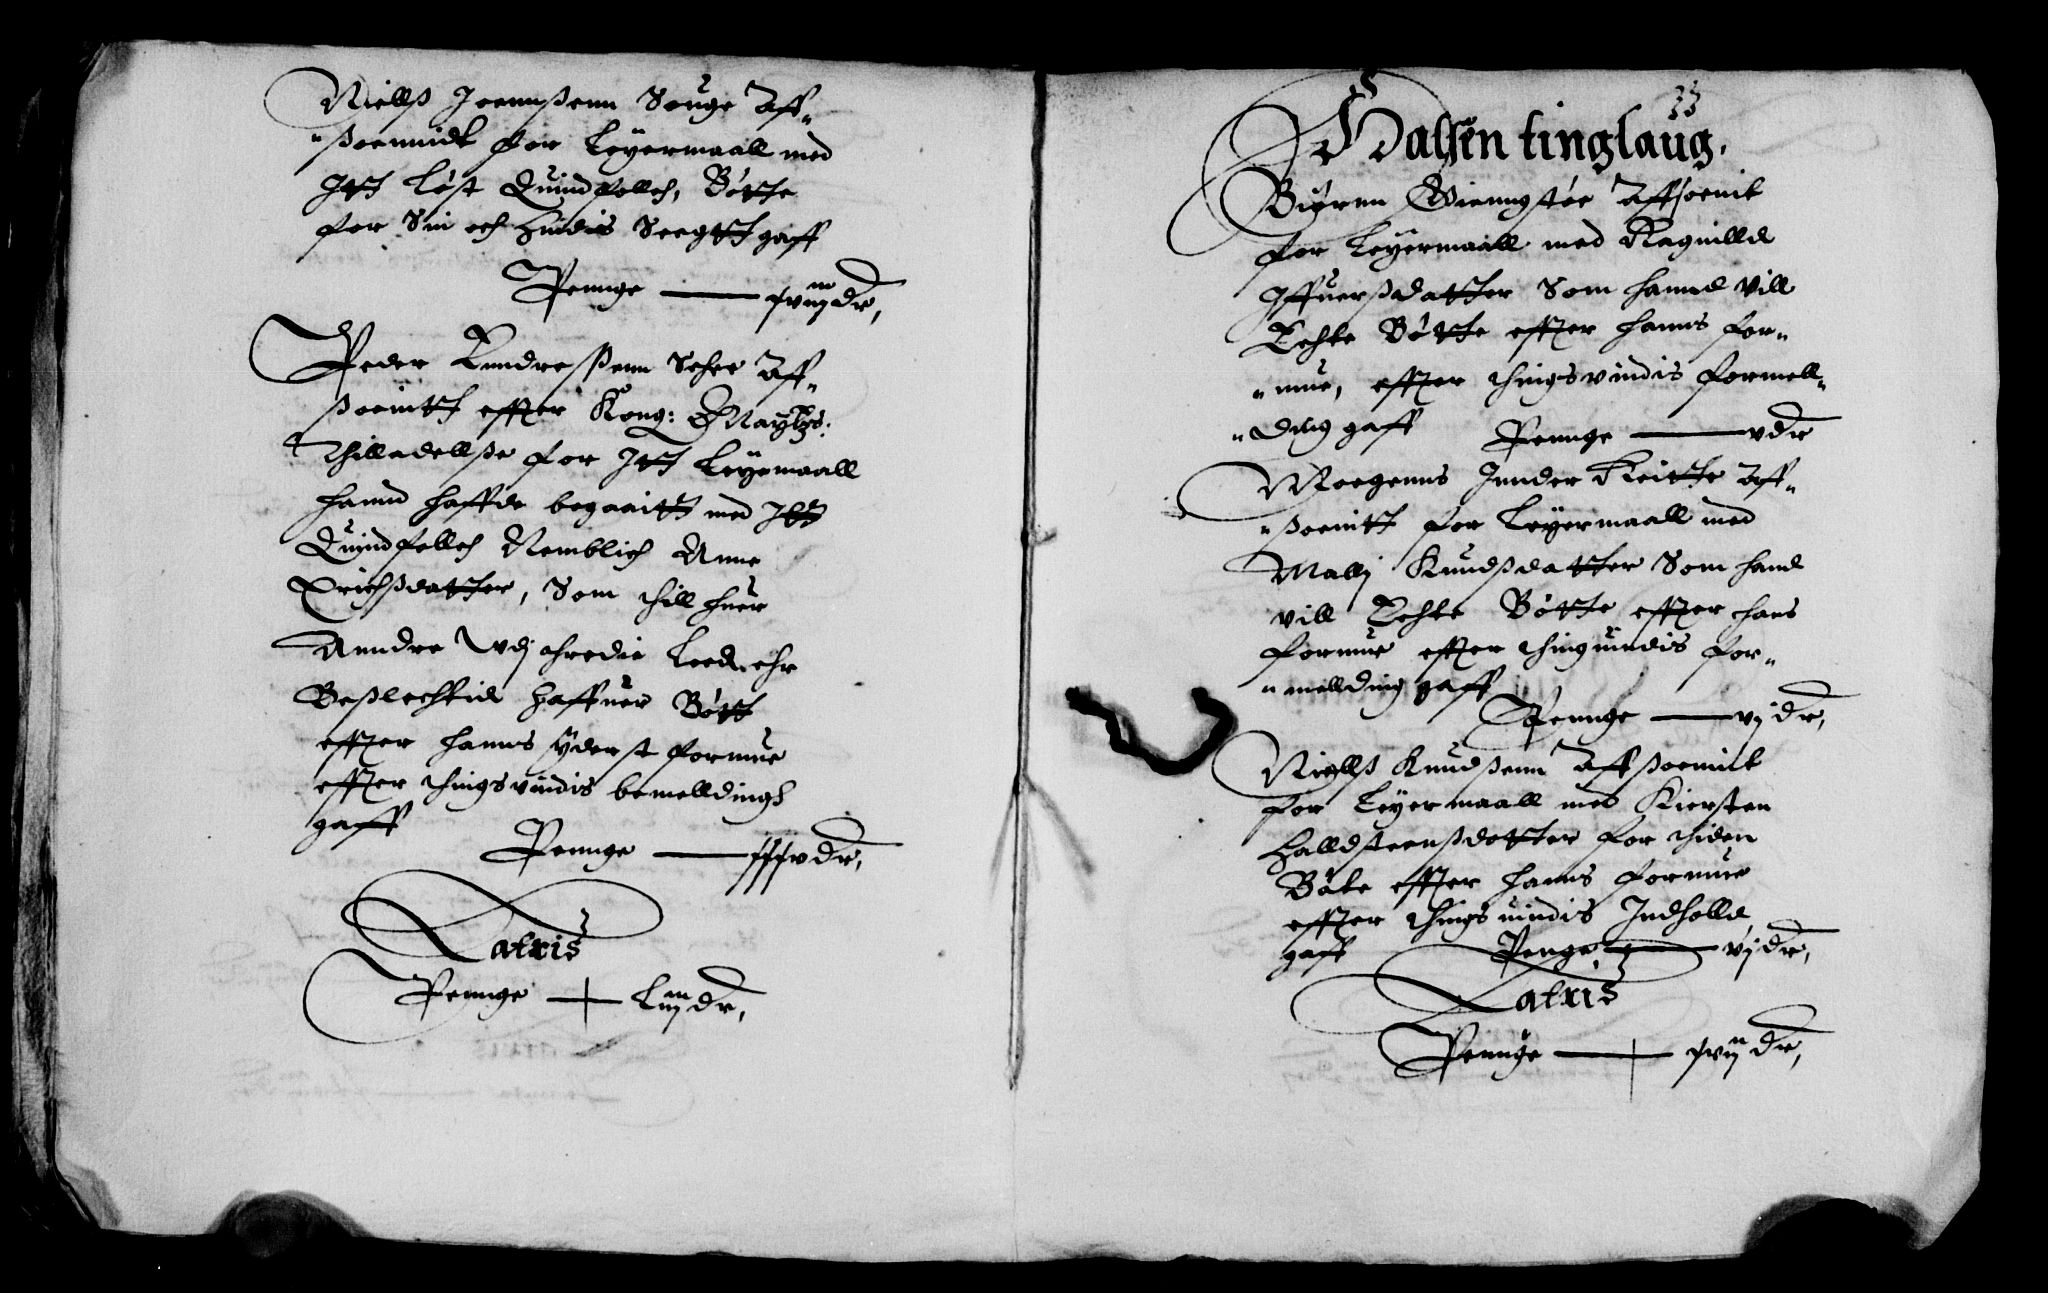 Niellß Joennßenn Souge Aff-
-ßoennidt for Leyermaall med
Itt Løst Quindfolch, Bøtte
for Sin och hindis Seegtt gaff
Pennge — xviij dr,
Peder Anndreßenn Schee Aff-
ßoenitt effter Kong: Maytzs:
Thilladellße for Itt Leyermaall
hannd haffde begaaitt med Itt
Quindfollch Nemblich Anne
Erichßdatter, Som thill huer
Anndre vdj thredie Leed ehr
Beßlechtid haffuer Bøtt
effter hanns yderst formue
effter thingsvindis bemelldingh
gaff
Pennge — xxxv dr,
Latris
Pennge — Liij dr,
33
Halsen tinglaug.
Biørnn Wienngstøe Affsoenit
for Leyermaall med Ragnilld
Iffuerßdatter Som hannd vill
Echte Bøtte effter hanns for-
-mue, effter thingsvindis formell-
-ding gaff Pennge — v dr
Moegenns Innder Keitte Aff-
-ßoenitt for Leyermaall med
Mallj Knudßdatter Som hand
vill Echte Bøtte effter hans
formue effter thinguindis for-
-mellding gaff
Pennge — vj dr,
Niellß Knudßenn Affßoenit
for Leyermaall med Kiersten
Halldsteenßdotter for thiden
Bøtte effter hanns formue
effter thingsuindis Indholld
gaff Penge — vj dr,
Latris
Pennge — xvij dr,